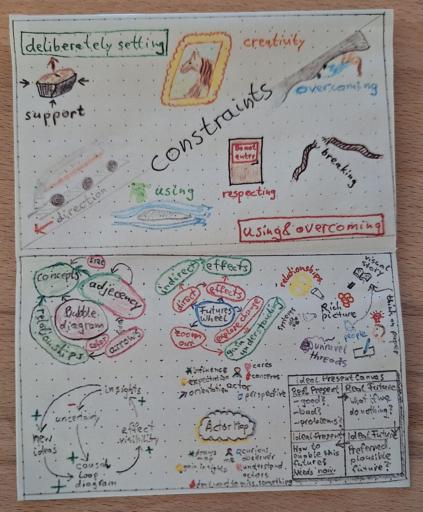 deliberately setting
creativity
overcoming
support
constraints
Do not
enter
breaking
using
respecting
direction
using & overcoming
indirect effects
visual
story
concepts
size
adjecency
direct
effects
relationships
Bubble
diagram
Futures
Wheel
explore change
Rich
picture
relationships
color
arrows
zoom
out
gain understanding
people
unravel
threads
influence
cares
expectations
concerns
insights
orientation
actor
perspective
uncertainty
Actor Map
new
ideas
effect
visibility
causal
loop
diagram
always
curious
observer
gain insights
understand
actors
Ideal Present Canvas
Real Present
- good?
- bad?
- problems?
Real Future
what if we
do nothing?
Ideal Present
How to
enable this
future?
Needs now
Ideal Future
Preferred,
plausible
future?